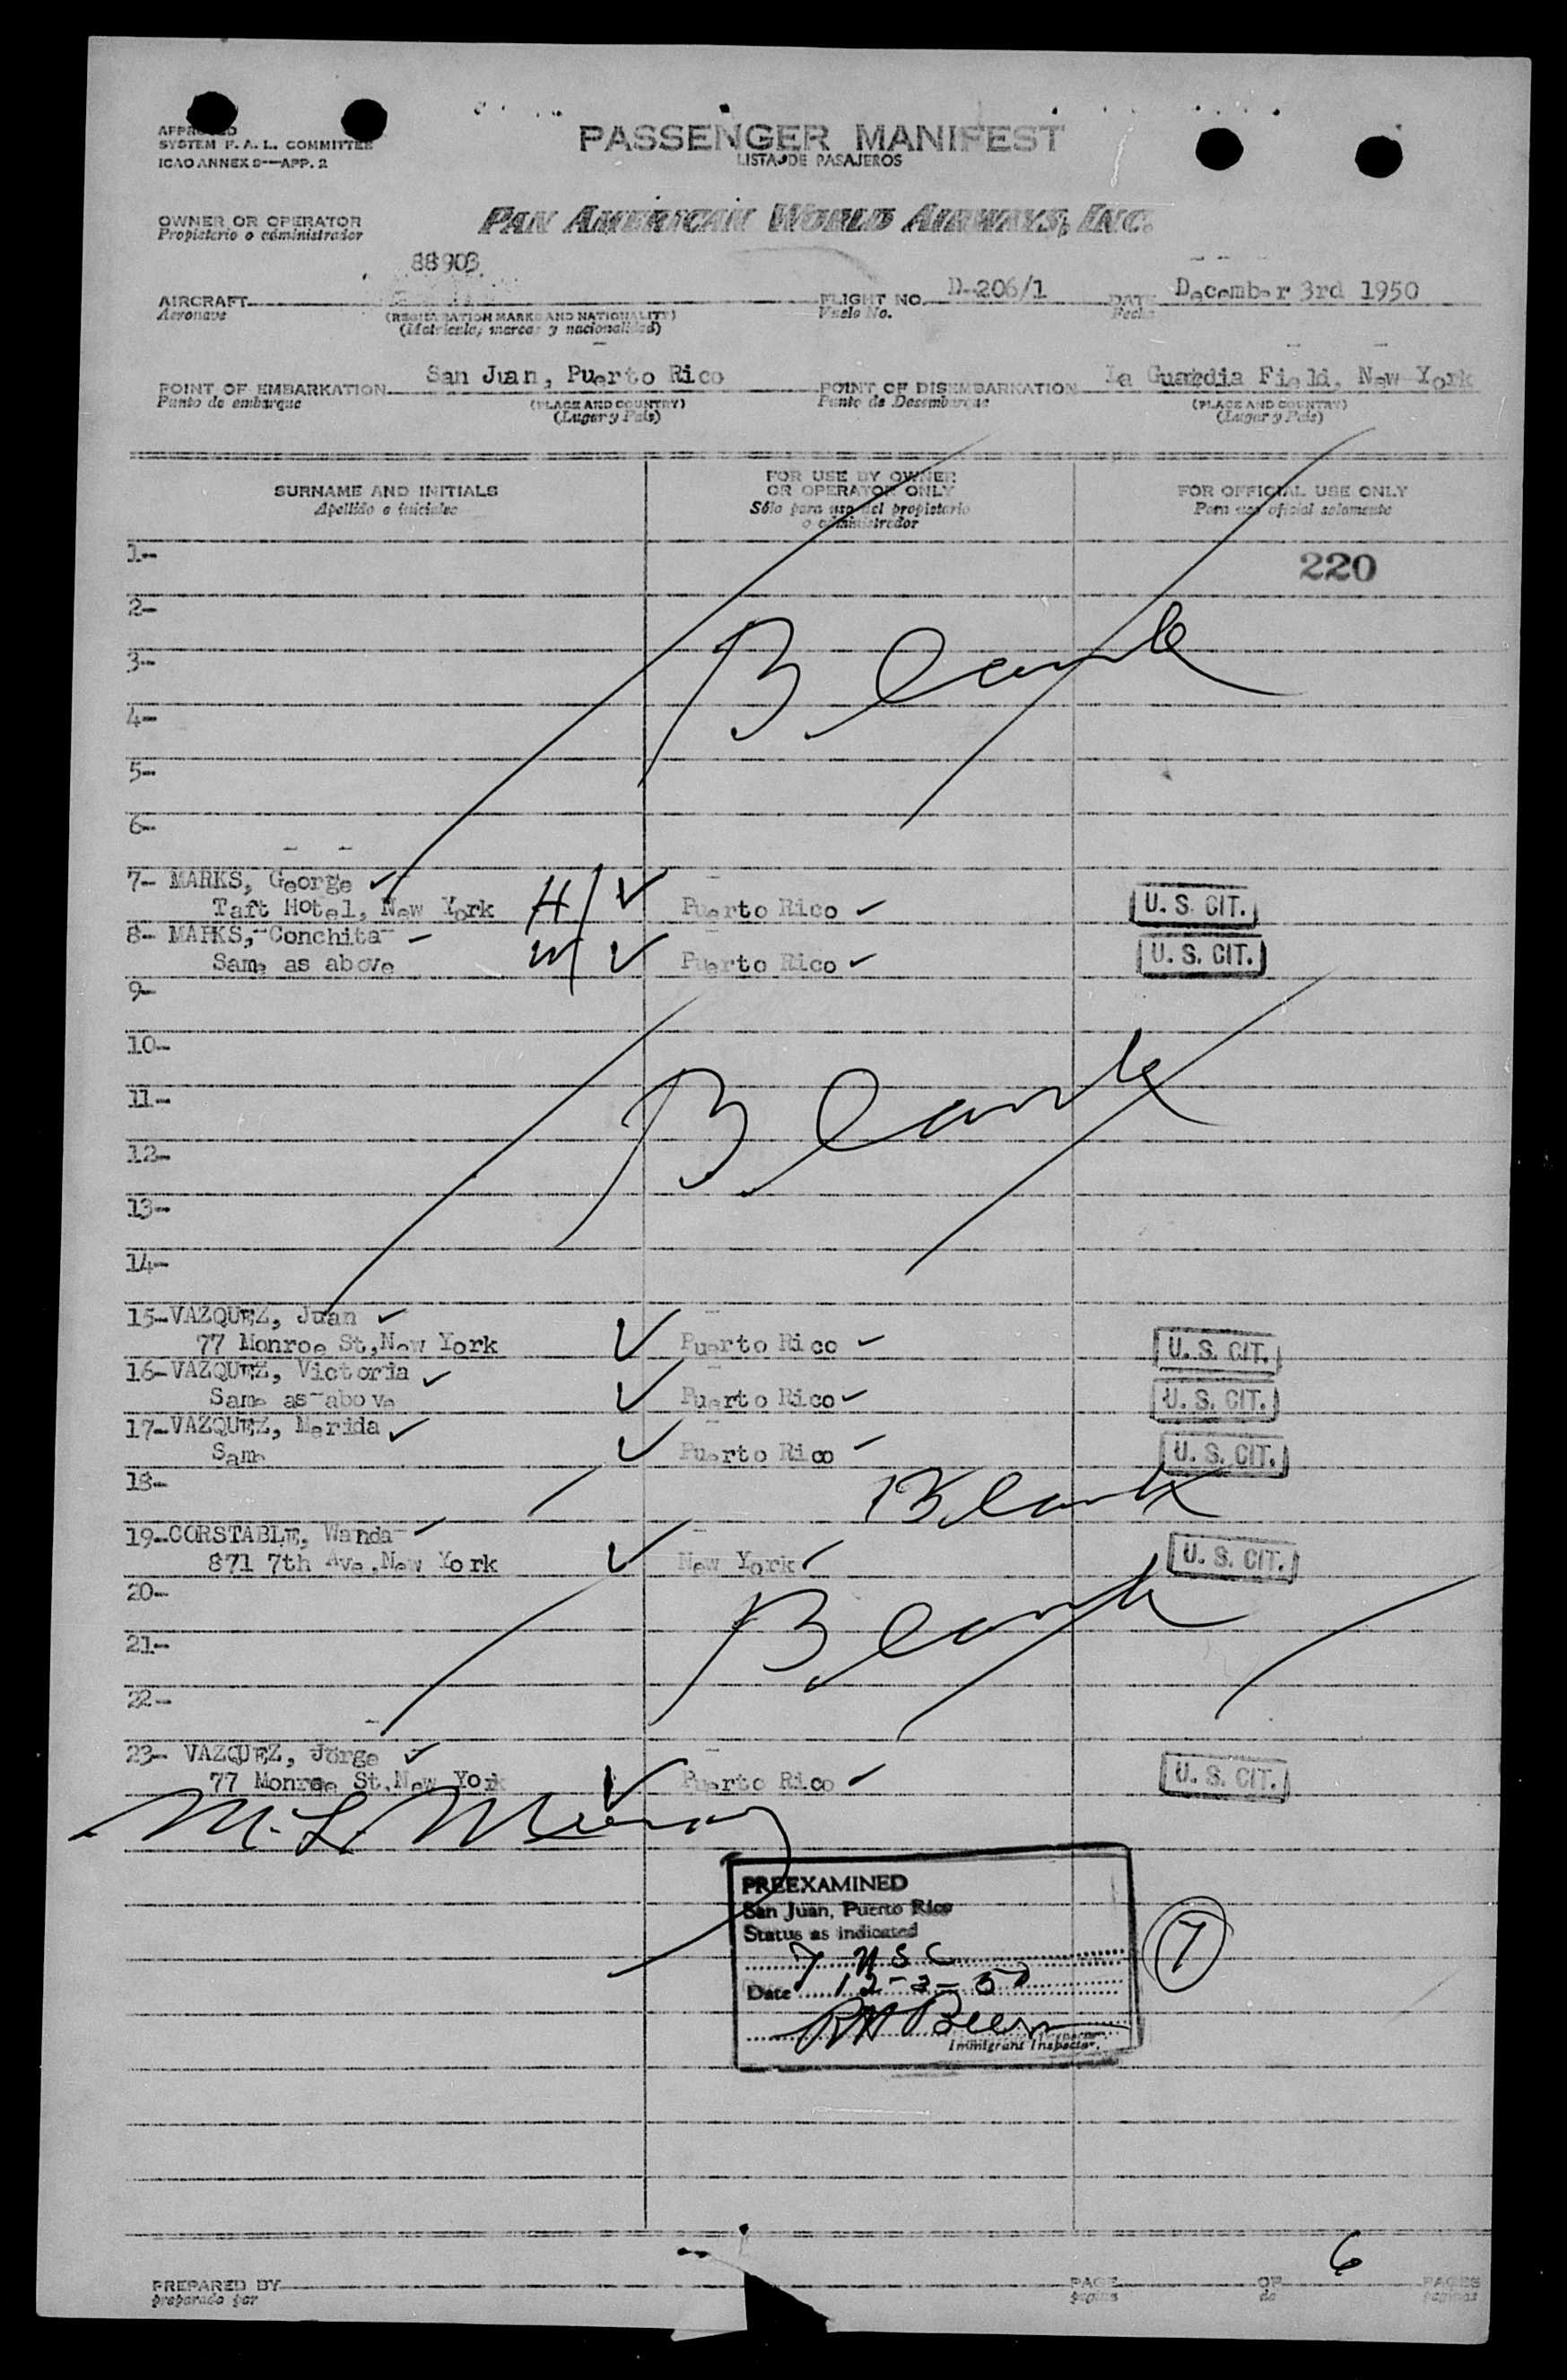 APPROVED
SYSTEM F. A. L. COMMITTEE
ICAO ANNEX 9—APP. 2
PASSENGER MANIFEST
LISTA DE PASAJEROS
OWNER OR OPERATOR
Propietario o administrador
PAN AMERICAN WORLD AIRWAYS, INC.
88903
AIRCRAFT
Aeronave
(REGISTRATION MARKS AND NATIONALITY)
(Matricula, marcas y nacionalidad)
FLIGHT NO. D-206/1
Vuelo No.
DATE December 3rd 1950
Fecha
POINT OF EMBARKATION San Juan, Puerto Rico
Punto de embarque
(PLACE AND COUNTRY)
(Lugar y País)
POINT OF DISEMBARKATION La Guardia Field, New York
Punto de Desembarque
(PLACE AND COUNTRY)
(Lugar y País)
SURNAME AND INITIALS
Apellido e iniciales
FOR USE BY OWNER
OR OPERATOR ONLY
Sólo para uso del propietario
o administrador
FOR OFFICIAL USE ONLY
Para uso oficial solamente
1-
220
2-
3- Blank
4-
5-
6-
7- MARKS, George
Taft Hotel, New York H Puerto Rico U. S. CIT.
8- MARKS, Conchita
Same as above W Puerto Rico U. S. CIT.
9-
10-
11- Blank
12-
13-
14-
15-VAZQUEZ, Juan
77 Monroe St,New York Puerto Rico U. S. CIT.
16-VAZQUEZ, Victoria
Same as above Puerto Rico U. S. CIT.
17-VAZQUEZ, Merida
Same Puerto Rico U. S. CIT.
18- Blank
19-CORSTABLE, Wanda
871 7th Ave.New York New York U. S. CIT.
20-
21- Blank
22-
23- VAZQUEZ, Jorge
77 Monroe St,New York Puerto Rico U. S. CIT.
M. L. Murray
PREEXAMINED
San Juan, Puerto Rico
Status as indicated
7 USC
Date 12-3-50
Immigrant Inspector.
7
6
PREPARED BY
preparado por
PAGE OF PAGES
página de páginas